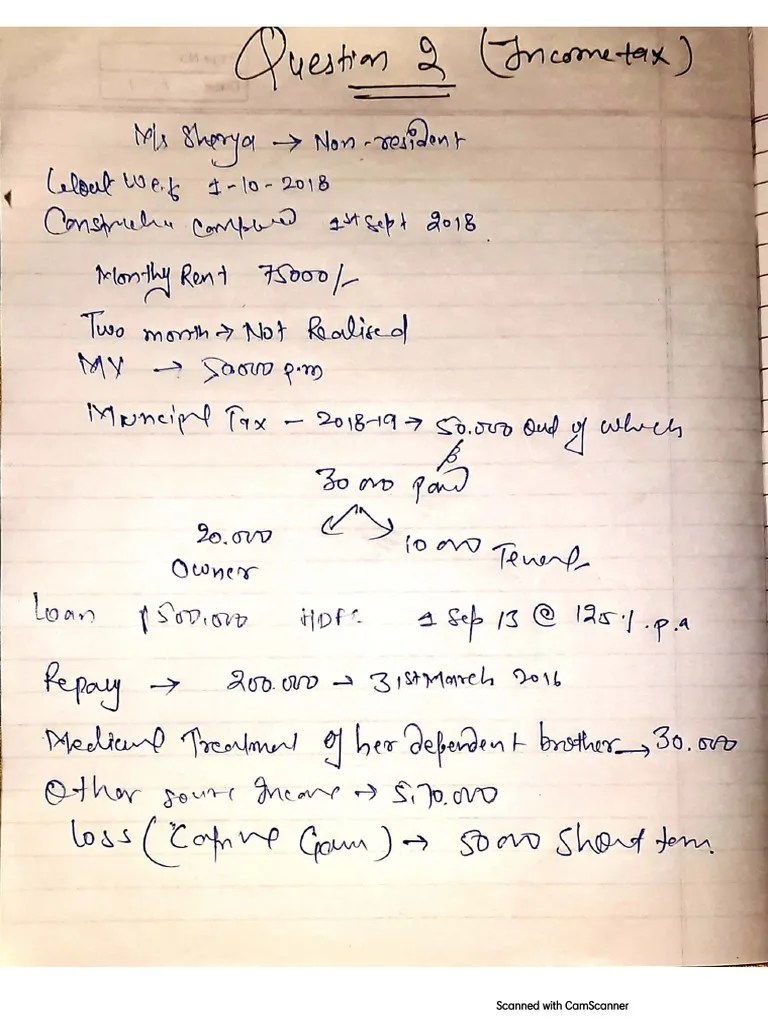 Question 2 (Income tax)
Ms Sherya → Non-resident
w.e.f 1-10-2018
1st Sept 2018
Monthly Rent 75000/-
Two month → Not Realised
MV → 50000 p.m
Muncipal Tax - 2018-19 → 50.000 out of which
30000 paid
20.000
10000 Tenent
Owner
Loan 1500,000 HDFC 1 Sep 13 @ 12%. p.a
Repay → 200.000 → 31st March 2016
Medical Treatment of her dependent brother → 30.000
Other Income → 5,70.000
Loss ( Gain) → 50000 Short term.
Scanned with CamScanner